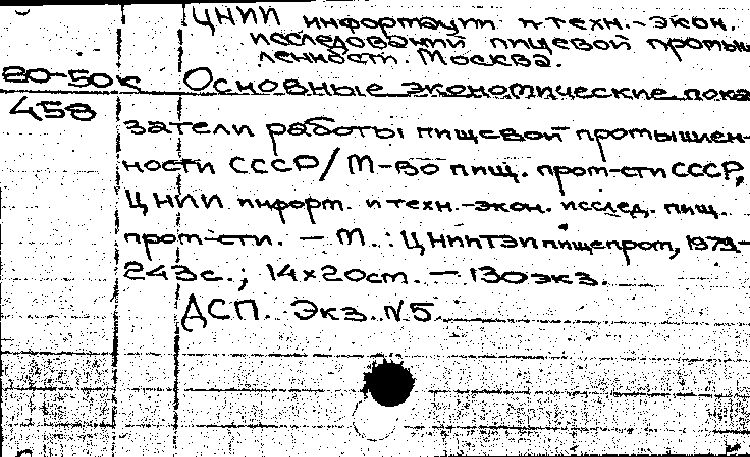 ЦНИИ информации и техн.-экон.
исследований пищевой промыш
ленности. Москва.
20-50к Основные экономические пока
458
затели работы пищевой промышлен-
ности СССР/М-во пищ. пром-сти СССР,
ЦНИИ информ. и техн.-экон. исслед. пищ.
пром-сти. — М.: ЦНИИТЭИпищепром,
243с.; 14×20см. — 130экз.
ДСП. Экз. №5